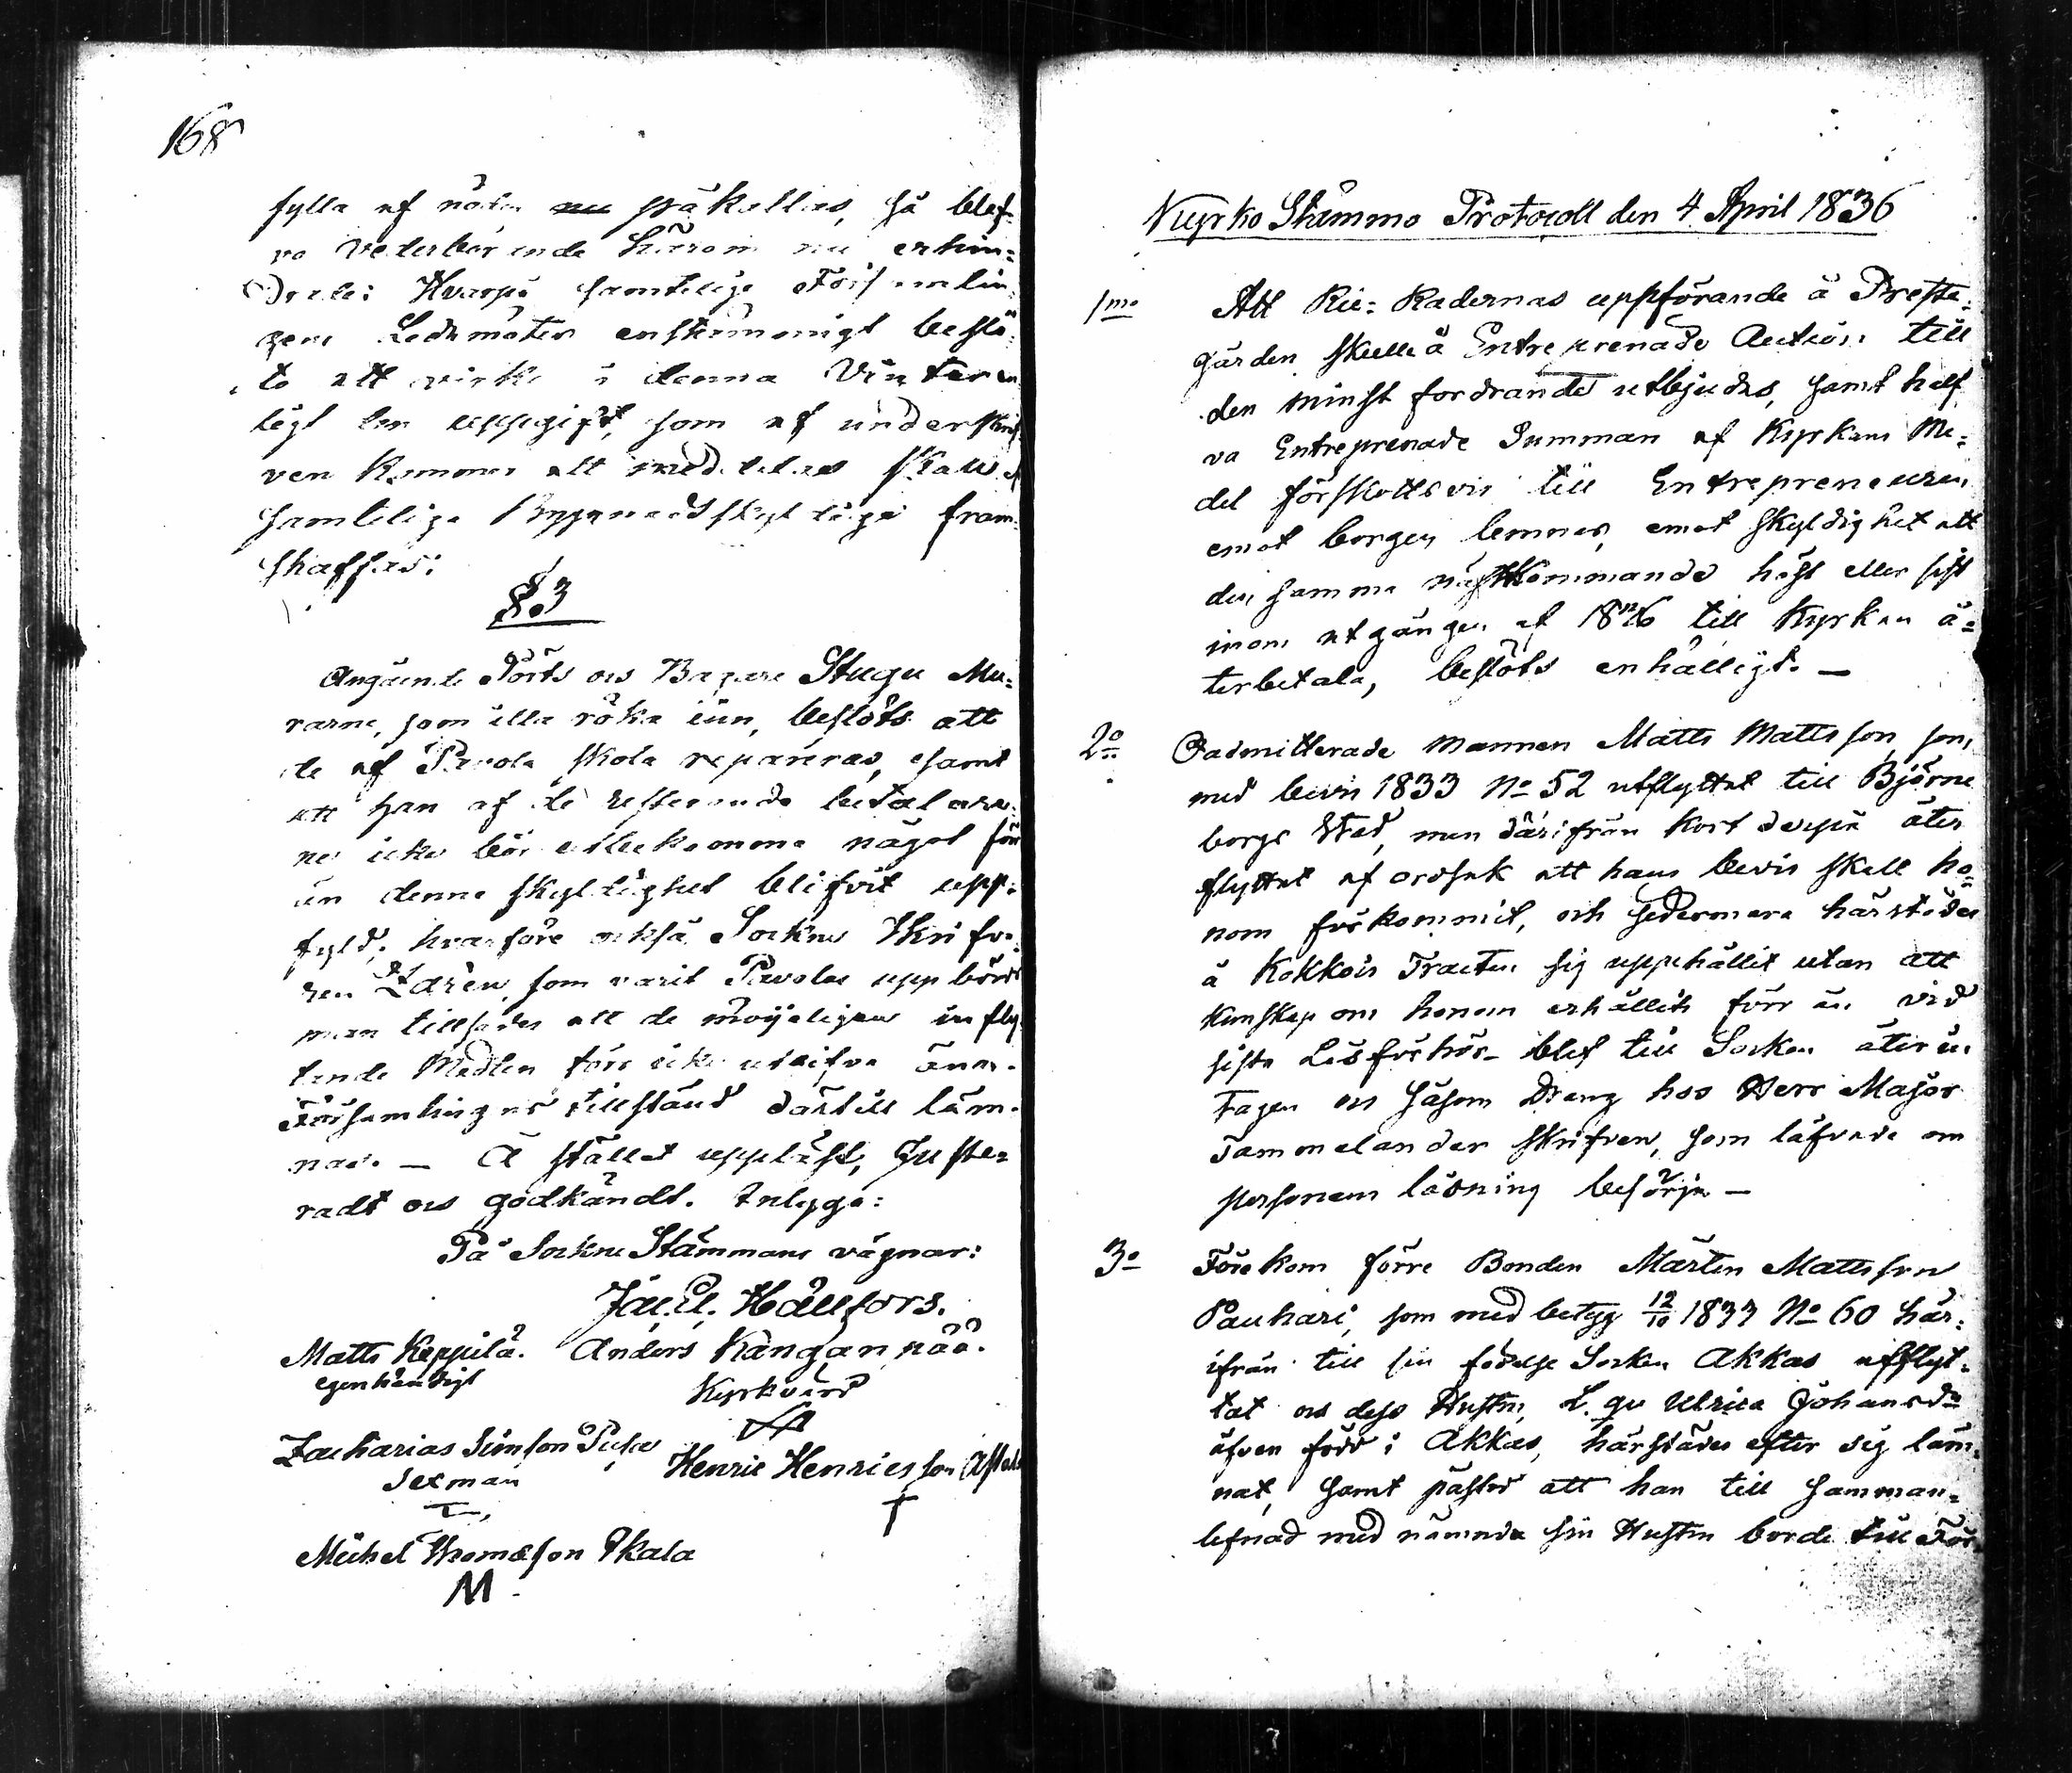 168
fylla af nöden påkallas, så blef-
vo vederbörande härom nu erhin=
drade: Hvarpå samtelige Församlin
gens Ledamöter enstämmigt beslö=
to att virke i denna Vinter en
ligt den uppgift, som af underskrif
ven kommer att meddelas skall af
samtelige Byggnadsskyldige fram-
skaffas:
§. 3
Angående Pörts och Bagare Stugu Mu=
rarne, som illa röka inn, beslöts att
de af Pavola skola repareras, samt
att han af de resterande betalnin
ne icke bör utbekomma något förr
än denne skyldighet blifvit upp=
fyld; hvarföre också Sockne Skrifva
ren Idrèn, som varit Pavolas uppbörds
man tillsades att de möjeligen infly
tande Medlen förr icke utgifva änn
Församlingens tillstånd därtill läm-
nas. — A stället uppläst, Juste-
radt och godkändt. Intyga:
På Sockne Stämmans vägnar:
Jac. El. Hällfors.
Matts Keppilä. Anders Kangannää.
egenhändigt Kyrkvärd
Zacharias Simson Puja Henric Henricsson
Sexman
Michel Thomasson Skala
M
Kyrko Stämmo Protocoll den 4 April 1836
1mo Att Rie= Radernas uppförande å Preste=
gården skulle å Entreprenade Auction till
den minst fordrande utbjudas, samt half
va Entreprenade Summan af Kyrkans Me=
del förskottsvis till Entrepreneuren,
emot borgen lemnas, emot skyldighet att
den samma nästkommande höst eller sist
inom utgången af 1836 till Kyrkan å=
terbetala, beslöts enhälligt. —
2o Oadmitterade mannen Matts Mattsson, som
med bevis 1833 No 52 utflyttat till Björne
borgs Stad, men därifrån kort derpå åter
flyttat af orsak att hans bevis skall ho=
nom förkommit, och sedermera härstädes
å Kokkois Tracten sig uppehållit utan att
kunskap om honom erhållits förr än vid
sista Läsförhör- blef till Socken åter in
tagen och såsom Dräng hos Herr Major
Tammelander skrifven, som låfvade om
personens läsning besörja —
3o Förekom förre Bonden Mårten Mattsson
Pauhari, som med betyg 12/10 1833 No 60 här=
ifrån till sin födelse Socken Akkas afflyt=
tat och dess Hustru, L. gu Ulrica Johansdr
äfven född i Akkas, härstädes efter sig läm=
nat, samt påstod att han till samman=
lefnad med nämnde sin Hustru borde till För